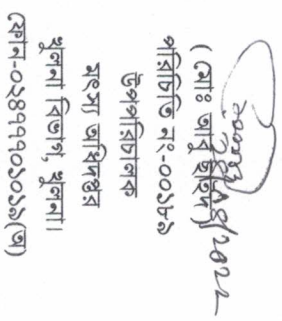 ( মোঃ আবু ছাইদ )
পরিচিতি নং-০০১৮৯
উপপরিচালক
মৎস্য অধিদপ্তর
খুলনা বিভাগ, খুলনা।
ফোন-০২৪৭৭৭০১০১৯(অ)